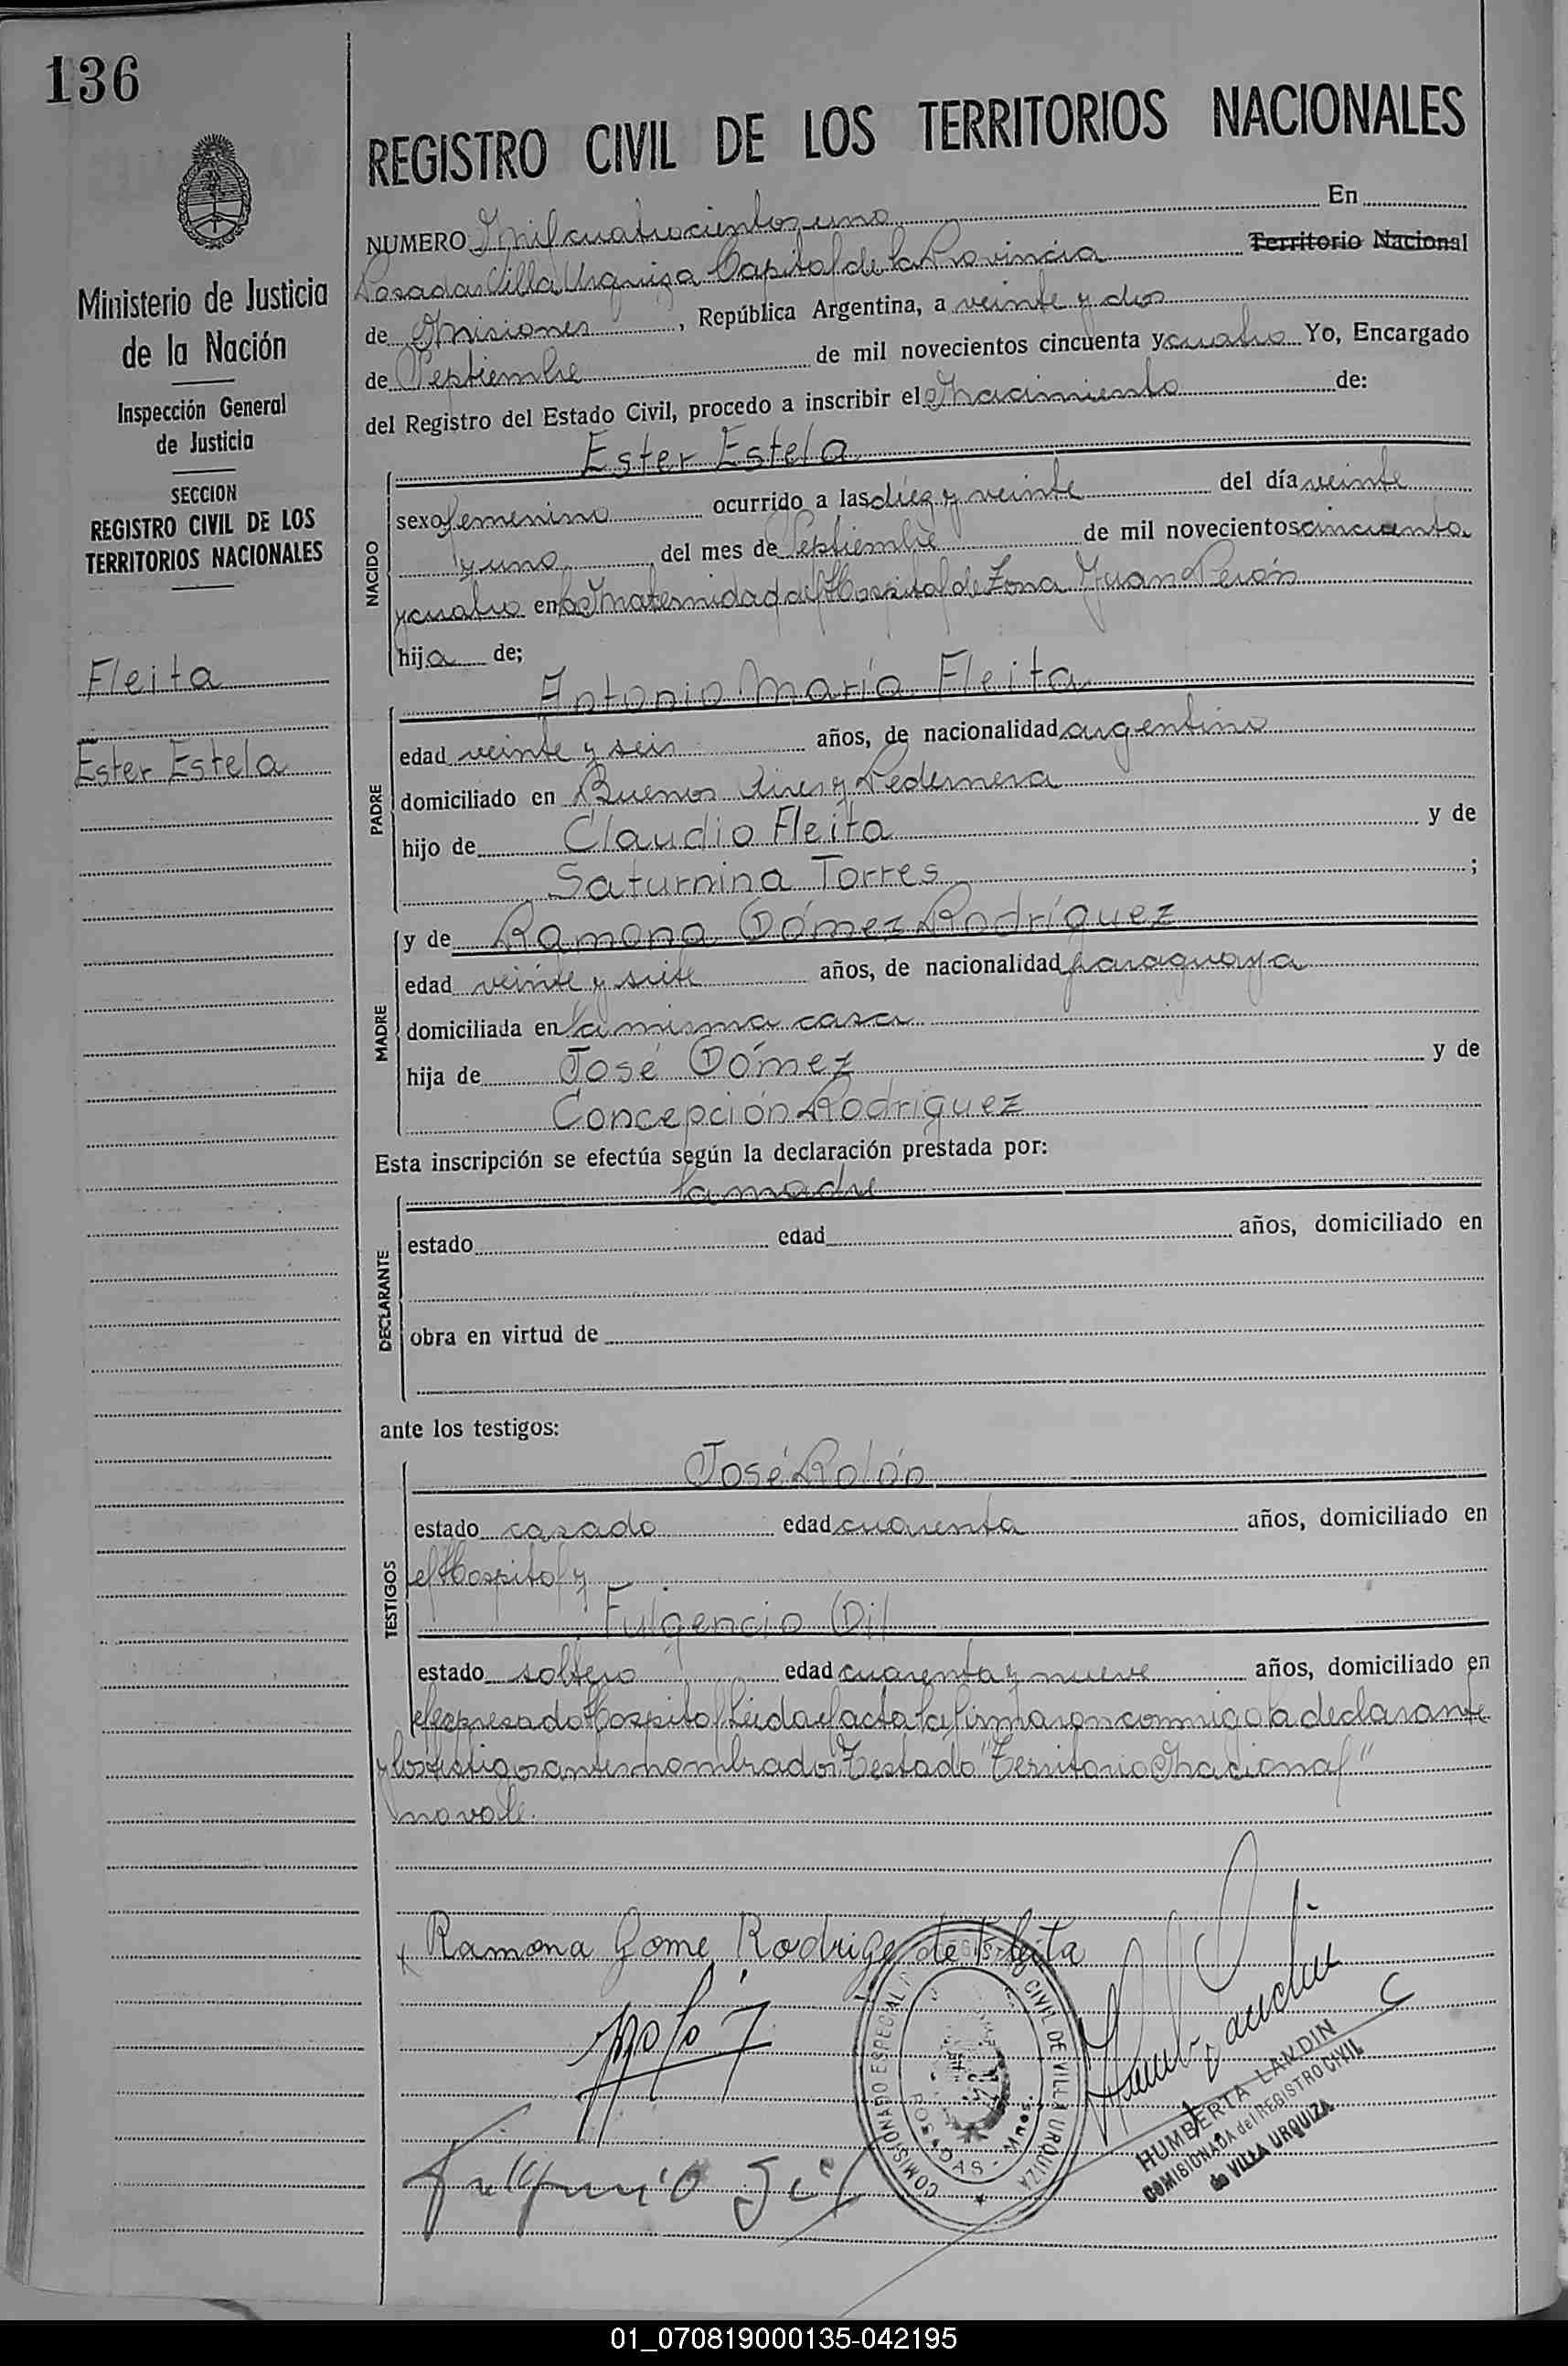 136
REGISTRO CIVIL DE LOS TERRITORIOS NACIONALES
NUMERO Mil cuatrocientos uno En
Posadas Villa Urquiza Capital de la Provincia Territorio Nacional
de Misiones, República Argentina, a veinte y dos
de Septiembre de mil novecientos cincuenta y cuatro Yo, Encargado
del Registro del Estado Civil, procedo a inscribir el Nacimiento de:
Ester Estela
NACIDO
sexo femenino ocurrido a las diez y veinte del día veinte
y uno del mes de Septiembre de mil novecientos cincuenta
y cuatro en la Maternidad del Hospital de Zona Juan Perón
hija de;
Ministerio de Justicia
de la Nación
Inspección General
de Justicia
SECCION
REGISTRO CIVIL DE LOS
TERRITORIOS NACIONALES
Fleita
Ester Estela
Antonio María Fleita
PADRE
edad veinte y seis años, de nacionalidad argentino
domiciliado en Buenos Aires y Pedernera
hijo de Claudio Fleita y de
Saturnina Torres ;
y de Ramona Gómez Rodríguez
MADRE
edad veinte y siete años, de nacionalidad paraguaya
domiciliada en la misma casa
hija de José Gómez y de
Concepción Rodríguez
Esta inscripción se efectúa según la declaración prestada por:
la madre
DECLARANTE
estado edad años, domiciliado en
obra en virtud de
ante los testigos:
José Rolón
TESTIGOS
estado casado edad cuarenta años, domiciliado en
el Hospital y
Fulgencio Gil
estado soltero edad cuarenta y nueve años, domiciliado en
el expresado Hospital Leida el acta la firmaron conmigo la declarante
y los testigos antes nombrados. Testado "Territorio Nacional"
no vale.
Ramona Gome Rodrige de Fleita
Fulgencio Gil
COMISIONADO ESPECIAL REGISTRO CIVIL DE VILLA URQUIZA
POSADAS - Mnes.
HUMBERTA LANDIN
COMISIONADA del REGISTRO CIVIL
de VILLA URQUIZA
01_070819000135-042195